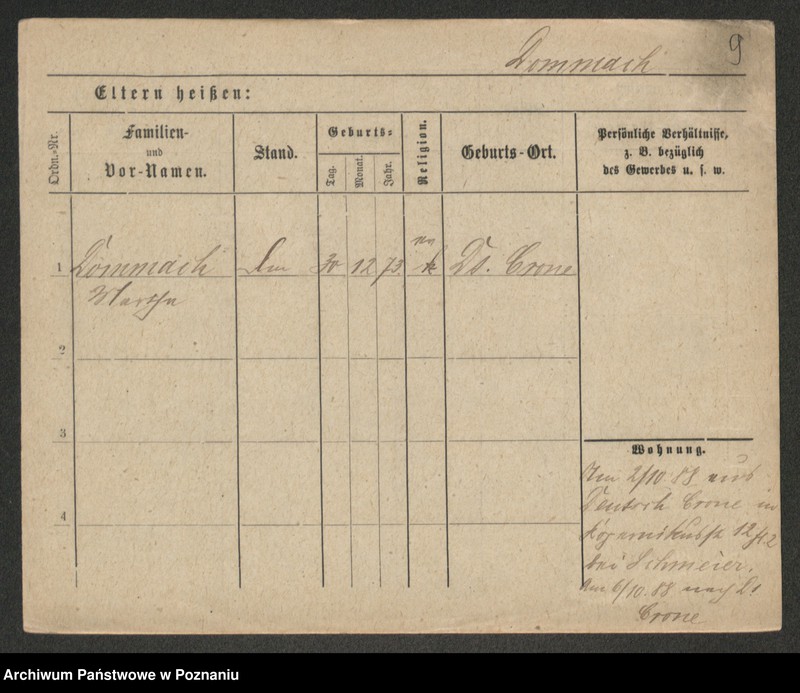 Dommach
9
Eltern heißen:
Ordn.-Nr.
Familien-
und
Vor-Namen.
Stand.
Geburts-
Tag.
Monat.
Jahr.
Religion.
Geburts-Ort.
Persönliche Verhältnisse,
z. B. bezüglich
des Gewerbes u. s. w.
1 Dommach 30 12 73 Dt. Crone
Martha
2
3
4
Wohnung.
Am 2/10 88 aus
Deutsch Crone in
12
bei Schmeier.
Am 6/10. 88 nach Dt
Crone